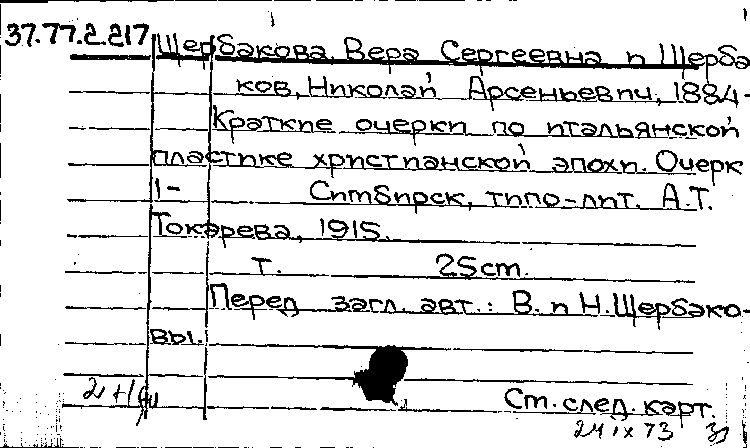 37.77.2.217
Щербакова, Вера Сергеевна и Щерба-
ков, Николай Арсеньевич, 1884-
Краткие очерки по итальянской
пластике христианской эпохи. Очерк
1- Симбирск, типо-лит. А.Т.
Токарева, 1915.
т. 25cm.
Перед загл. авт.: В. и Н. Щербако-
вы.
Ст. след. карт.
24 IX 73